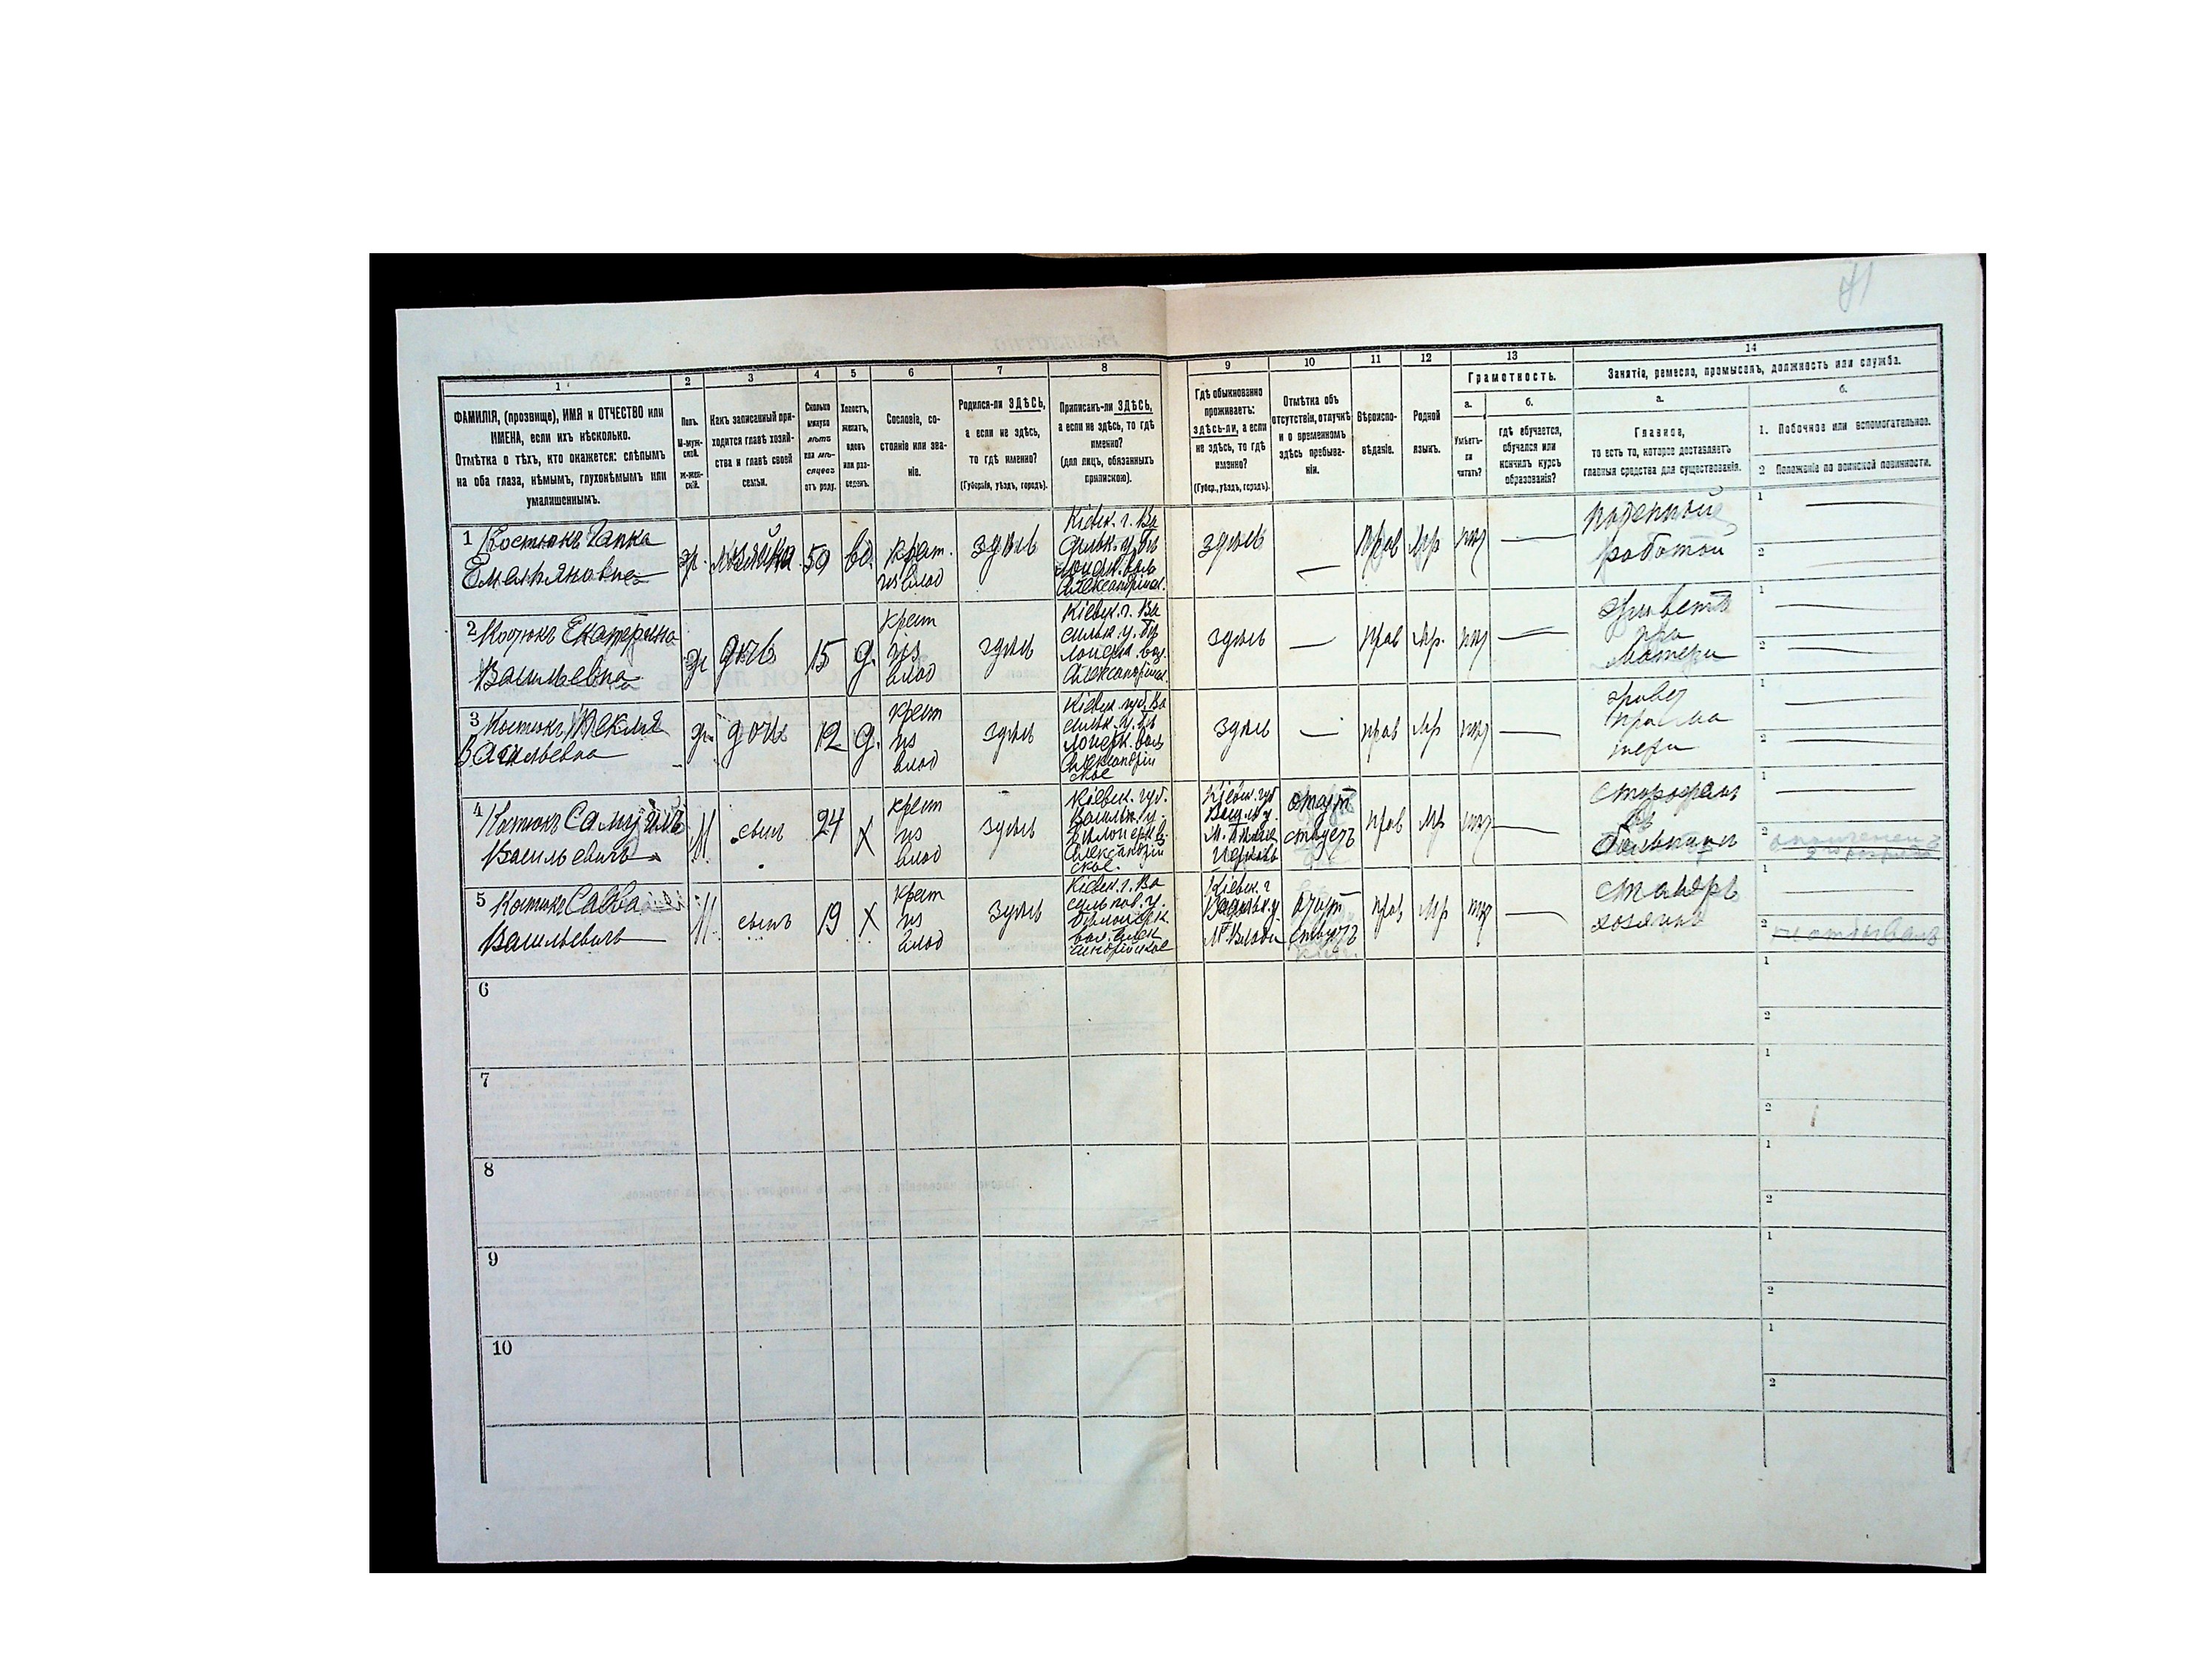 71
1 2 3 4 5 6 7 8 9 10 11 12 13 14
ФАМИЛІЯ, (прозвище), ИМЯ и ОТЧЕСТВО или
ИМЕНА, если ихъ нѣсколько.
Отмѣтка о тѣхъ, кто окажется: слѣпымъ
на оба глаза, нѣмымъ, глухонѣмымъ или
умалишеннымъ.
Полъ.
М-муж-
ской.
Ж-жен-
скій.
Какъ записанный при-
ходится главѣ хозяй-
ства и главѣ своей
семьи.
Сколько
минуло
лѣтъ
или мѣ-
сяцевъ
отъ роду.
Холостъ,
женатъ,
вдовъ
или раз-
веденъ.
Сословіе, со-
стояніе или зва-
ніе.
Родился-ли ЗДѢСЬ,
а если не здѣсь,
то гдѣ именно?
(Губернія, уѣздъ, городъ).
Приписанъ-ли ЗДѢСЬ,
а если не здѣсь, то гдѣ
именно?
(для лицъ, обязанныхъ
припискою).
Гдѣ обыкновенно
проживаетъ:
здѣсь-ли, а если
не здѣсь, то гдѣ
именно?
(Губер., уѣздъ, городъ).
Отмѣтка объ
отсутствіи, отлучкѣ
и о временномъ
здѣсь пребыва-
ніи.
Вѣроиспо-
вѣданіе.
Родной
языкъ.
Грамотность.
а.
Умѣетъ-
ли
читать?
б.
гдѣ обучается,
обучался или
кончилъ курсъ
образованія?
Занятіе, ремесло, промыселъ, должность или служба.
а.
Главное,
то есть то, которое доставляетъ
главныя средства для существованія.
б.
1. Побочное или вспомогательное.
2 Положеніе по воинской повинности.
1 Костюкъ Гапка
Емельяновна
ж. хозяйка 50 вд.
крест.
из влад
здѣсь
Кіевск. г. Ва
сильк. у. Бѣ
лоцерк. вол
Александрійск.
здѣсь — прав мр нѣт —
поденной
работой
1 —
2
2 Костюкъ Екатерина
Васильевна
ж дочь 15 д.
крест
из
влад
здѣсь
Кіевск. г. Ва
сильк. у. Бѣ
лоцерк. вол.
Александрійск.
здѣсь — прав мр. нѣт —
живетъ
при
матери
1 —
2 —
3 Костюкъ Фекла
Васильевна
ж. дочь 12 д.
крест
из
влад
здѣсь
Кіевск. губ. Ва
сильк. у. Бѣ
лоцерк. вол
Александрій
ское
здѣсь — прав мр нѣт —
живе
при ма
тери
1 —
2 —
4 Костюкъ Самуилъ
Васильевичъ
М сынъ 24 х
крест
из
влад
здѣсь
Кіевск. губ.
Васильк. у.
Бѣлоцерк в.
Александрій
ское.
Кіевск. губ
Васильк. у.
М. Бѣлая
Церковь
отсут
ствуетъ
прав мр нѣт —
сторожем
въ
больницѣ
1 —
2
5 Костюкъ Савва
Васильевичъ
М. сынъ 19 х
крест
из
влад
здѣсь
Кіевск. г. Ва
сильков. у.
Бѣлоцерк.
вол. Алек
сандрійское
Кіевск. г
Васильк. у.
отсут
ствуетъ
прав мр нѣт —
столяръ
хозяинъ
1 —
2 не отбывалъ
6 1
2
7 1
2
8 1
2
9 1
2
10 1
2